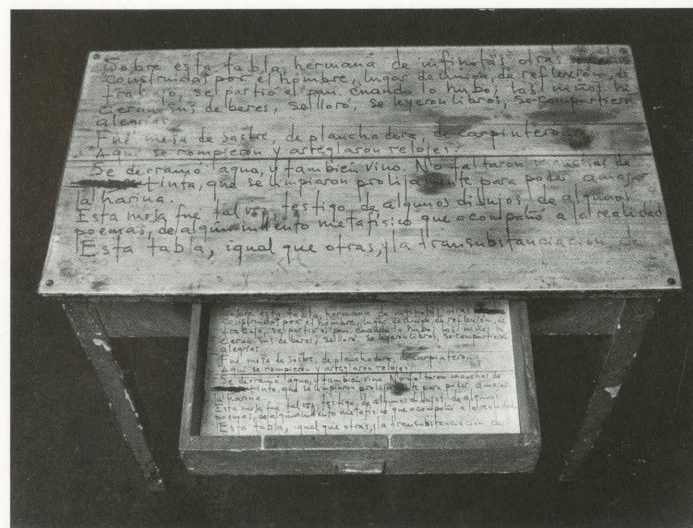 Sobre esta tabla, hermana de infinitas otras
construidas por el hombre, lugar de union, de reflexion, de
trabajo, se partió el pan cuando lo hubo; los niños hi
cieron sus deberes, se lloró, se leyeron libros, se compartieron
alegrias.
Fué mesa de sastre, de planchadora, de carpintero
Aquí se rompieron y arreglaron relojes.
Se derramó agua, y también vino. No faltaron manchas de
tinta, que se limpiaron prolijamente para poder amasar
la harina.
Esta mesa fue tal vez, testigo de algunos dibujos, de algunos
poemas, de algun intento metafísico que acompañó a la realidad
Esta tabla, igual que otras, la transubstanciación de
Sobre esta tabla, hermana de infinitas otras
construidas por el hombre, lugar de union, de reflexión, de
trabajo, se partió el pan cuando lo hubo; los niños hi
cieron sus deberes, se lloró, se leyeron libros, se compartieron
alegrias
Fué mesa de sastre, de planchadora, de carpintero
Aquí se rompieron y arreglaron relojes.
Se derramó agua, y también vino. No faltaron manchas de
tinta, que se limpiaron prolijamente para poder amasar
la harina.
Esta mesa fue tal vez, testigo de algunos dibujos, de algunos
poemas, de algun intento metafísico que acompañó a la realidad
Esta tabla, igual que otras, la transubstanciación de